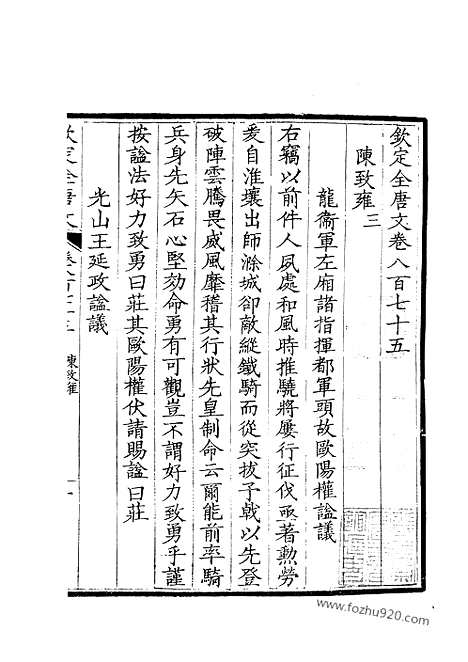 欽定全唐文卷八百七十五
陳致雍三
龍衞軍左廂諸指揮都軍頭故歐陽權諡議
右竊以前件人夙處和風時推驍將屢行征伐亟著勲勞
爰自淮壤出師滁城卻敵縱鐵騎而從突拔子戟以先登
破陣雲騰畏威風靡稽其行狀先皇制命云爾能前率騎
兵身先矢石心堅効命勇有可觀豈不謂好力致勇乎謹
按諡法好力致勇曰莊其歐陽權伏請賜諡曰莊
光山王延政諡議
欽定全唐文
陳致雍
一
www.fozhu920.com